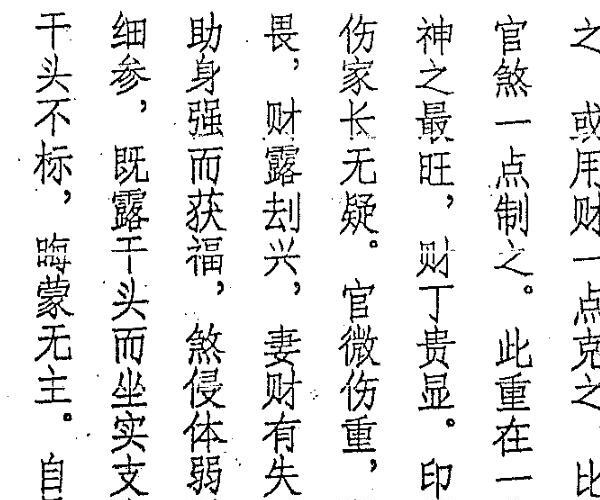 之 或用财一点克之 比
官煞一点制之。此重在一
神之最旺,财丁贵显。印
伤家长无疑。官微伤重,
畏,财露刦兴,妻财有失
助身强而获福,煞侵体弱
细参,既露干头而坐实支
干头不标,晦蒙无主。自